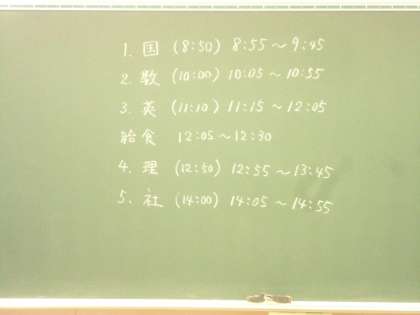 1. 国 (8:50) 8:55～9:45
2. 数 (10:00) 10:05～10:55
3. 英 (11:10) 11:15～12:05
給食 12:05～12:30
4. 理 (12:50) 12:55～13:45
5. 社 (14:00) 14:05～14:55